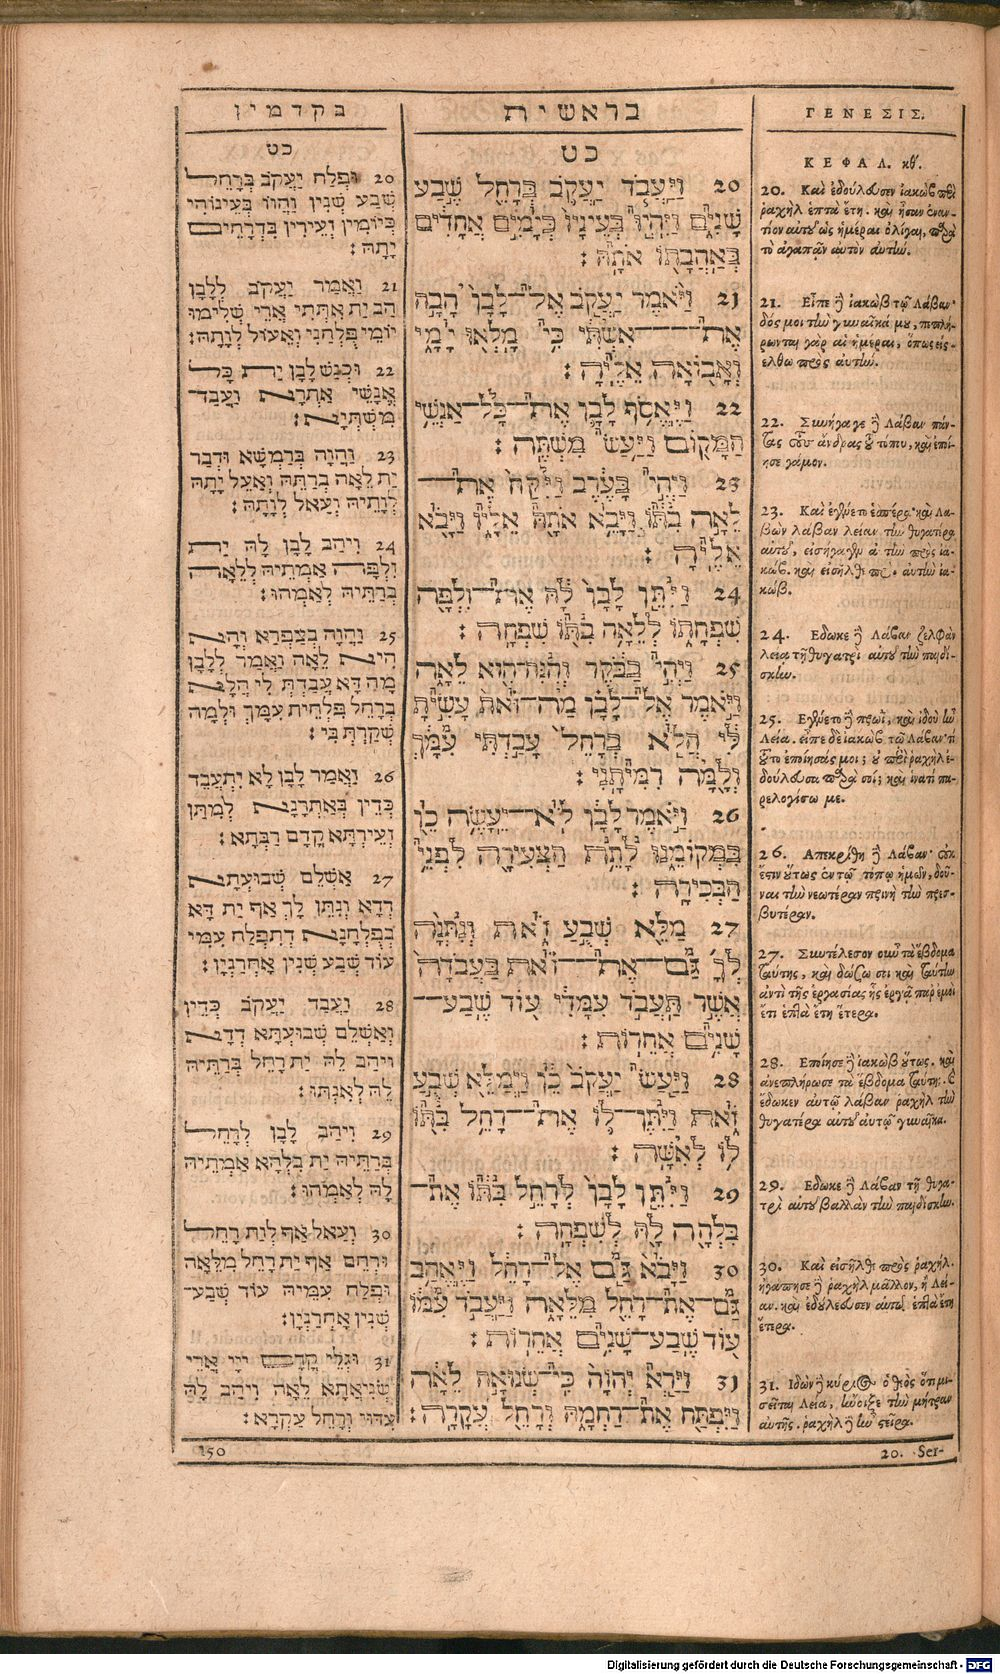 בקדמין
כט
20 וּפְלַח יַעֲקֹב בְּרָחֵל
שְׁבַע שְׁנִין וַהֲווֹ בְּעֵינוֹהִי
כְּיוֹמִין זְעֵירִין בִּדְרָחֵים
יָתַהּ׃
21 וַאֲמַר יַעֲקֹב לְלָבָן
הַב יַת אִתְּתִי אֲרֵי שְׁלִימוּ
יוֹמֵי פָּלְחָנִי וְאֵעוֹל לְוָתַהּ׃
22 וּכְנַשׁ לָבָן יַת כָּל
אֱנָשֵׁי אַתְרָא וַעֲבַד
מִשְׁתְּיָא׃
23 וַהֲוָה בְרַמְשָׁא וּדְבַר
יַת לֵאָה בְרַתֵּהּ וְאַעֵל יָתַהּ
לְוָתֵיהּ וְעַאל לְוָתַהּ׃
24 וִיהַב לָבָן לַהּ יַת
זִלְפָּה אַמְתֵיהּ לְלֵאָה
בְרַתֵּיהּ לְאַמְהוּ׃
25 וַהֲוָה בְצַפְרָא וְהָא
הִיא לֵאָה וַאֲמַר לְלָבָן
מָה דָא עֲבַדְתְּ לִי הֲלָא
בְרָחֵל פְּלָחִית עִמָּךְ וּלְמָה
שַׁקַּרְתְּ בִּי׃
26 וַאֲמַר לָבָן לָא יִתְעֲבֵד
כְּדֵין בְּאַתְרָנָא לְמִתַּן
זְעֵירְתָּא קֳדָם רַבְּתָא׃
27 אַשְׁלֵם שְׁבוּעֲתָא
דְדָא וְנִתֵּן לָךְ אַף יַת דָּא
בְּפָלְחָנָא דְּתִפְלַח עִמִּי
עוֹד שְׁבַע שְׁנִין אָחֳרָנְיָן׃
28 וַעֲבַד יַעֲקֹב כְּדֵין
וְאַשְׁלֵם שְׁבוּעֲתָא דְדָא
וִיהַב לֵהּ יַת רָחֵל בְּרַתֵּיהּ
לֵהּ לְאִנְתּוּ׃
29 וִיהַב לָבָן לְרָחֵל
בְּרַתֵּיהּ יַת בִּלְהָא אַמְתֵיהּ
לַהּ לְאַמְהוּ׃
30 וְעַאל אַף לְוַת רָחֵל
וּרְחֵם אַף יַת רָחֵל מִלֵּאָה
וּפְלַח עִמֵּיהּ עוֹד שְׁבַע
שְׁנִין אָחֳרָנְיָן׃
31 וּגְלֵי קֳדָם יְיָ אֲרֵי
שְׂנִיאֲתָא לֵאָה וִיהַב לַהּ
עִדּוּי וְרָחֵל עַקְרָא׃
150
בראשית
כט
20 וַיַּעֲבֹד יַעֲקֹב בְּרָחֵל שֶׁבַע
שָׁנִים וַיִּהְיוּ בְעֵינָיו כְּיָמִים אֲחָדִים
בְּאַהֲבָתוֹ אֹתָהּ׃
21 וַיֹּאמֶר יַעֲקֹב אֶל־לָבָן הָבָה
אֶת־אִשְׁתִּי כִּי מָלְאוּ יָמָי
וְאָבוֹאָה אֵלֶיהָ׃
22 וַיֶּאֱסֹף לָבָן אֶת־כָּל־אַנְשֵׁי
הַמָּקוֹם וַיַּעַשׂ מִשְׁתֶּה׃
23 וַיְהִי בָעֶרֶב וַיִּקַּח אֶת־
לֵאָה בִתּוֹ וַיָּבֵא אֹתָהּ אֵלָיו וַיָּבֹא
אֵלֶיהָ׃
24 וַיִּתֵּן לָבָן לָהּ אֶת־זִלְפָּה
שִׁפְחָתוֹ לְלֵאָה בִתּוֹ שִׁפְחָה׃
25 וַיְהִי בַבֹּקֶר וְהִנֵּה־הִוא לֵאָה
וַיֹּאמֶר אֶל־לָבָן מַה־זֹּאת עָשִׂיתָ
לִּי הֲלֹא בְרָחֵל עָבַדְתִּי עִמָּךְ
וְלָמָּה רִמִּיתָנִי׃
26 וַיֹּאמֶר לָבָן לֹא־יֵעָשֶׂה כֵן
בִּמְקוֹמֵנוּ לָתֵת הַצְּעִירָה לִפְנֵי
הַבְּכִירָה׃
27 מַלֵּא שְׁבֻעַ זֹאת וְנִתְּנָה
לְךָ גַּם־אֶת־זֹאת בַּעֲבֹדָה
אֲשֶׁר תַּעֲבֹד עִמָּדִי עוֹד שֶׁבַע־
שָׁנִים אֲחֵרוֹת׃
28 וַיַּעַשׂ יַעֲקֹב כֵּן וַיְמַלֵּא שְׁבֻעַ
זֹאת וַיִּתֶּן־לוֹ אֶת־רָחֵל בִּתּוֹ
לוֹ לְאִשָּׁה׃
29 וַיִּתֵּן לָבָן לְרָחֵל בִּתּוֹ אֶת־
בִּלְהָה לָהּ לְשִׁפְחָה׃
30 וַיָּבֹא גַּם אֶל־רָחֵל וַיֶּאֱהַב
גַּם־אֶת־רָחֵל מִלֵּאָה וַיַּעֲבֹד עִמּוֹ
עוֹד שֶׁבַע־שָׁנִים אֲחֵרוֹת׃
31 וַיַּרְא יְהוָה כִּי־שְׂנוּאָה לֵאָה
וַיִּפְתַּח אֶת־רַחְמָהּ וְרָחֵל עֲקָרָה׃
ΓΕΝΕΣΙΣ.
ΚΕΦΑΛ. κθ́.
20. Καὶ ἐδούλευσεν ἰακὼβ περὶ
ῥαχὴλ ἑπτὰ ἔτη. καὶ ἦσαν ἐναν-
τίον αὐτοῦ ὡς ἡμέραι ὀλίγαι, παρὰ
τὸ ἀγαπᾷν αὐτὸν αὐτήν.
21. Εἶπε δὲ ἰακὼβ τῷ Λάβαν·
δός μοι τὴν γυναῖκά μου, πεπλή-
ρωνται γὰρ αἱ ἡμέραι, ὅπως εἰσ-
έλθω πρὸς αὐτήν.
22. Συνήγαγε δὲ Λάβαν πάν-
τας τοὺς ἄνδρας τοῦ τόπου, καὶ ἐποί-
ησε γάμον.
23. Καὶ ἐγένετο ἑσπέρα· καὶ λα-
βὼν λάβαν λείαν τὴν θυγατέρα
αὐτοῦ, εἰσήγαγεν αὐτὴν πρὸς ἰα-
κώβ. καὶ εἰσῆλθε πρὸς αὐτὴν ἰα-
κώβ.
24. Εδωκε δὲ Λάβαν ζελφὰν
λείᾳ τῇ θυγατρὶ αὐτοῦ τὴν παιδί-
σκην.
25. Εγένετο δὲ πρωΐ, καὶ ἰδοὺ ἦν
Λεία. εἶπε δὲ ἰακὼβ τῷ Λάβαν· τί
τοῦτο ἐποίησάς μοι; οὐ περὶ ῥαχὴλ ἐ-
δούλευσα παρὰ σοί; καὶ ἱνατί πα-
ρελογίσω με.
26. Απεκρίθη δὲ Λάβαν· οὐκ
ἔστιν οὕτως ἐν τῷ τόπῳ ἡμῶν, δοῦ-
ναι τὴν νεωτέραν πρινὴ τὴν πρεσ-
βυτέραν.
27. Συντέλεσον οὖν τὰ ἕβδομα
ταύτης, καὶ δώσω σοι καὶ ταύτην
ἀντὶ τῆς ἐργασίας ἧς ἐργᾷ παρ' ἐμοὶ
ἔτι ἑπτὰ ἔτη ἕτερα.
28. Εποίησε δὲ ἰακὼβ οὕτως. καὶ
ἀνεπλήρωσε τὰ ἕβδομα ταύτης. καὶ
ἔδωκεν αὐτῷ λάβαν ῥαχὴλ τὴν
θυγατέρα αὐτοῦ αὐτῷ γυναῖκα.
29. Εδωκε δὲ Λάβαν τῇ θυγα-
τρὶ αὐτοῦ βαλλὰν τὴν παιδίσκην.
30. Καὶ εἰσῆλθε πρὸς ῥαχήλ.
ἠγάπησε δὲ ῥαχὴλ μᾶλλον, ἢ Λεί-
αν. καὶ ἐδούλευσεν αὐτῷ ἑπτὰ ἔτη
ἕτερα.
31. Ιδὼν δὲ κύριος ὁ θεὸς ὅτι μι-
σεῖται Λεία, ἤνοιξε τὴν μήτραν
αὐτῆς. ῥαχὴλ δὲ ἦν στεῖρα.
20. Ser-
Digitalisierung gefördert durch die Deutsche Forschungsgemeinschaft - DFG